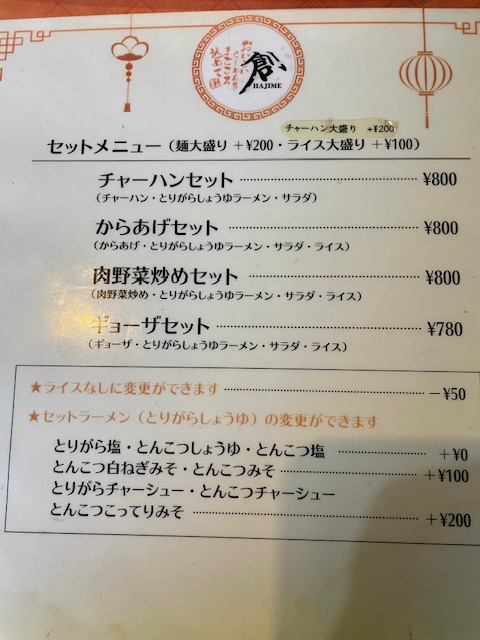 創
HAJIME
チャーハン大盛り +¥200
セットメニュー（麺大盛り＋¥200・ライス大盛り＋¥100）
チャーハンセット ¥800
（チャーハン・とりがらしょうゆラーメン・サラダ）
からあげセット ¥800
（からあげ・とりがらしょうゆラーメン・サラダ・ライス）
肉野菜炒めセット ¥800
（肉野菜炒め・とりがらしょうゆラーメン・サラダ・ライス）
ギョーザセット ¥780
（ギョーザ・とりがらしょうゆラーメン・サラダ・ライス）
★ライスなしに変更ができます －¥50
★セットラーメン（とりがらしょうゆ）の変更ができます
とりがら塩・とんこつしょうゆ・とんこつ塩 ＋¥0
とんこつ白ねぎみそ・とんこつみそ ＋¥100
とりがらチャーシュー・とんこつチャーシュー
とんこつこってりみそ ＋¥200